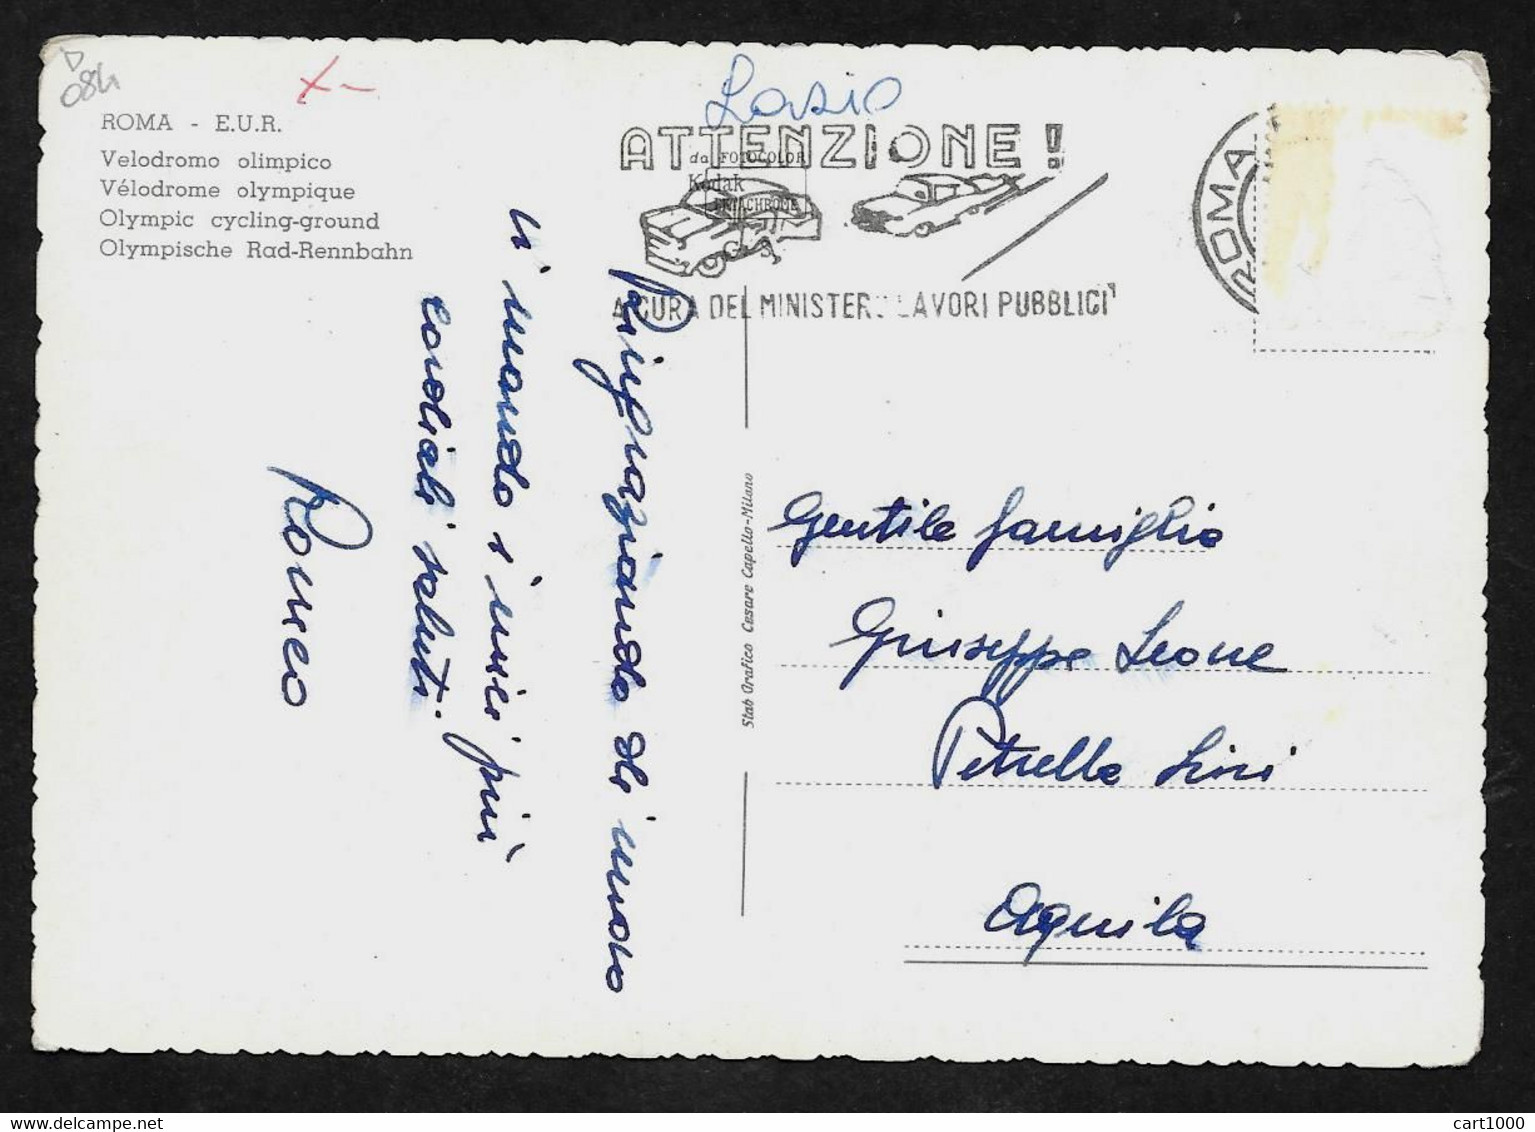 08h
ROMA - E.U.R.
Velodromo olimpico
Vélodrome olympique
Olympic cycling-ground
Olympische Rad-Rennbahn
Lazio
ATTENZIONE!
da FOTOCOLOR
Kodak
EKTACHROME
A CURA DEL MINISTERO LAVORI PUBBLICI
ROMA
Ringraziando di nuovo
vi mando i miei più
cordiali saluti.
Romeo
Stab Grafico Cesare Capello-Milano
Gentile famiglia
Giuseppe Leone
Petrella Liri
Aquila
cart1000